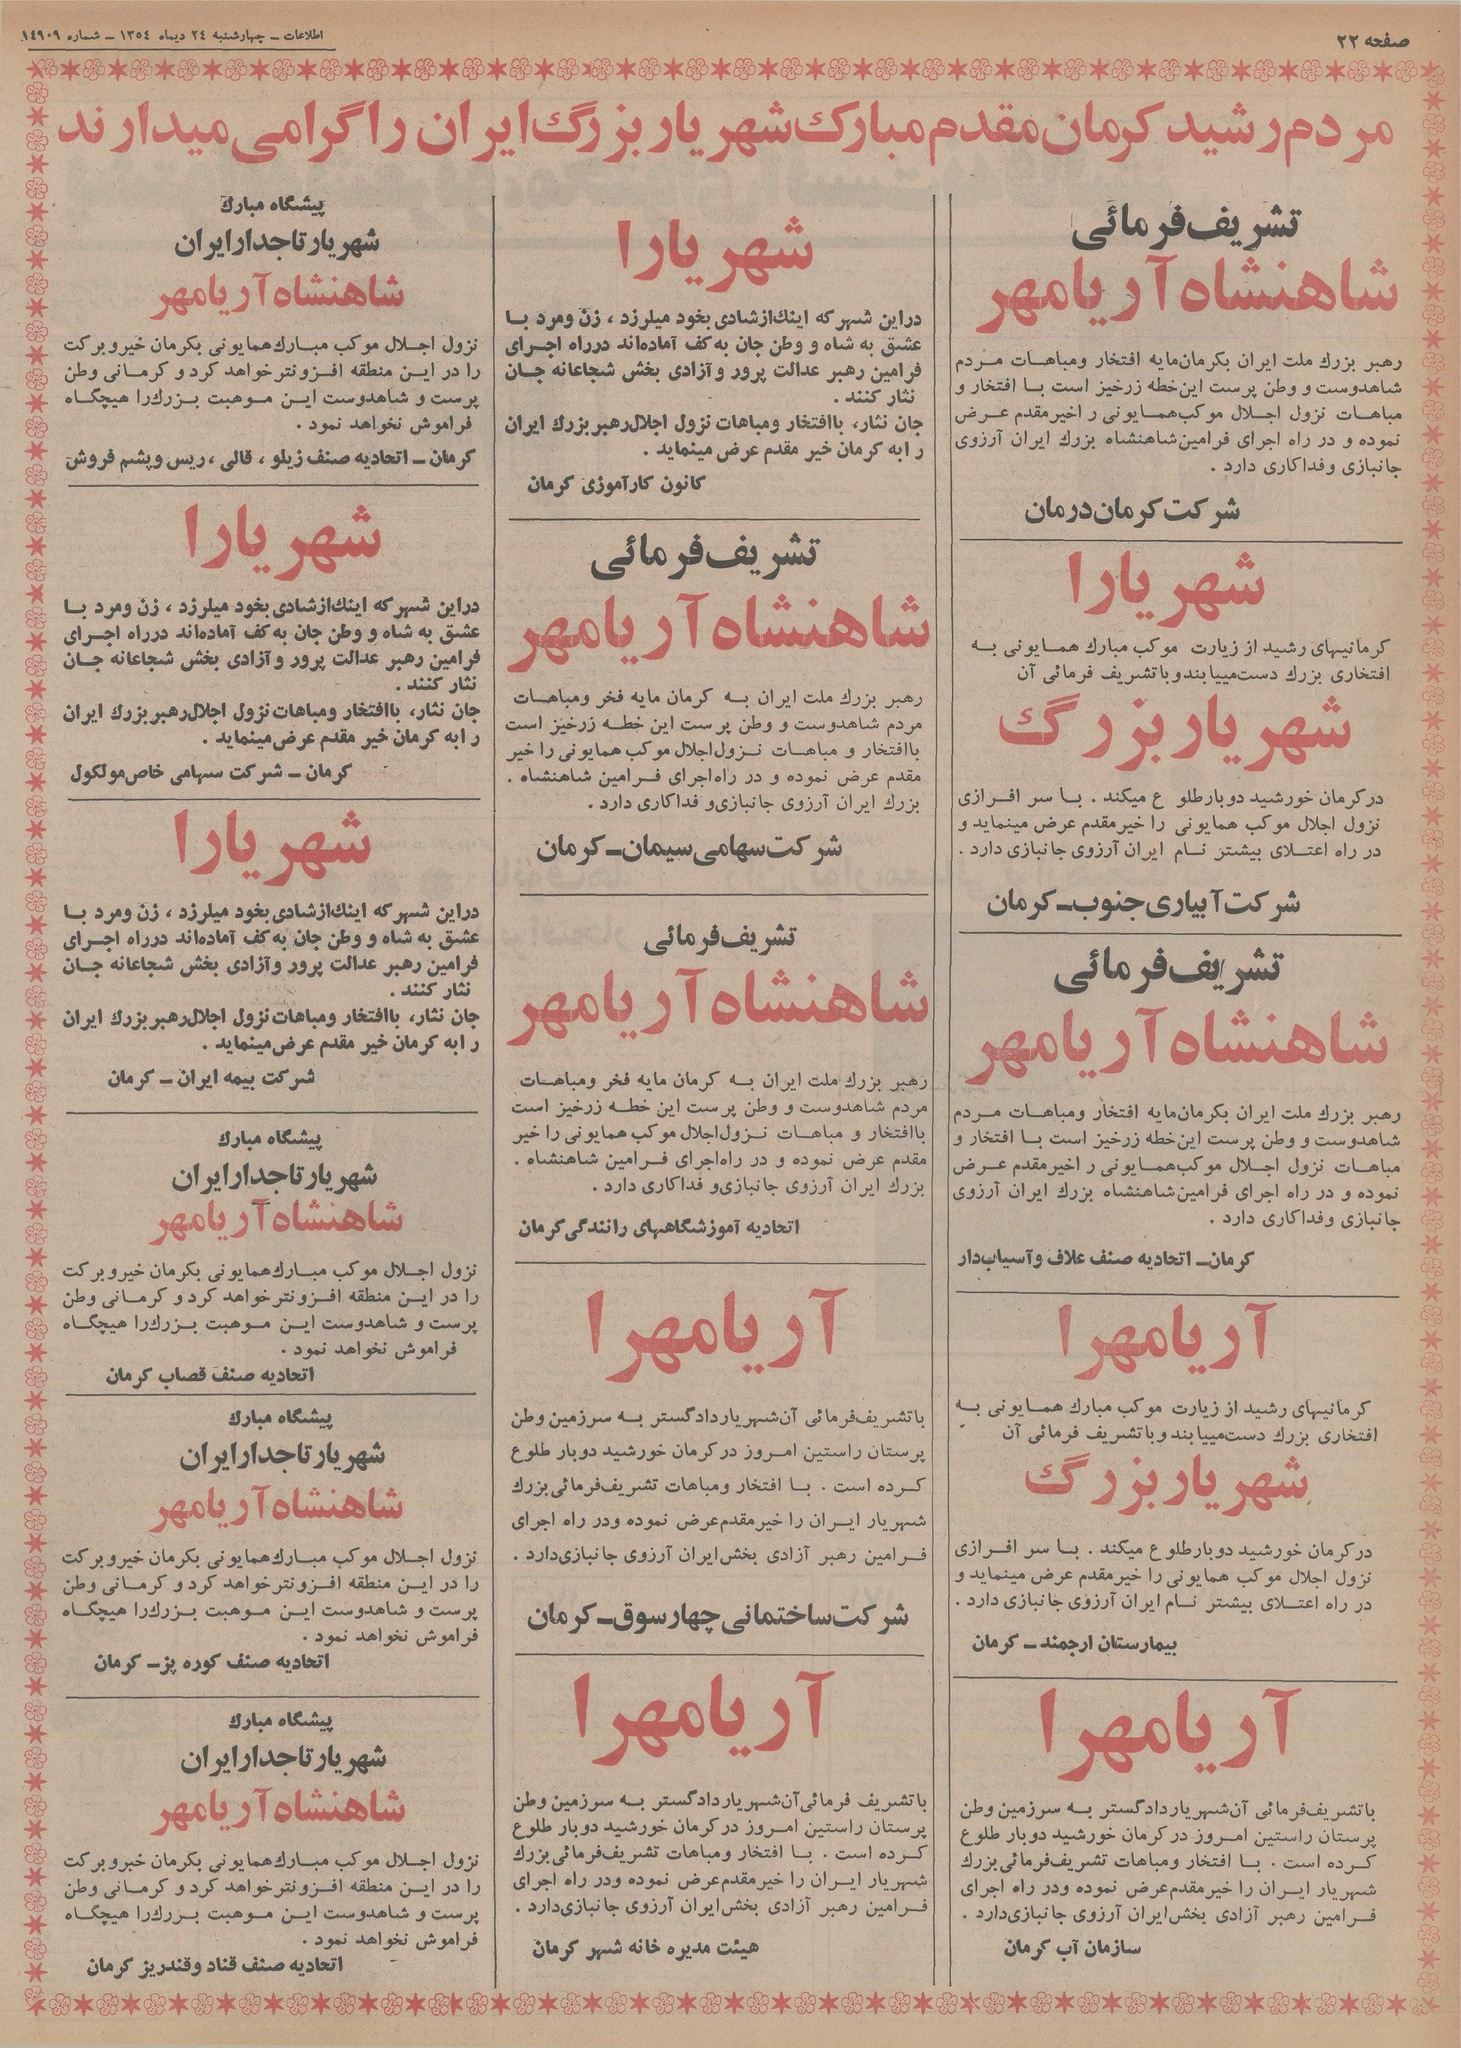 صفحه ۲۲
اطلاعات ـ چهارشنبه ۲۴ دیماه ۱۳۵۴ ـ شماره ۱۴۹۰۹
مردم رشید کرمان مقدم مبارک شهریار بزرگ ایران را گرامی میدارند
تشریف فرمائی
شاهنشاه آریامهر
رهبر بزرك ملت ایران بکرمان مایه افتخار ومباهات مردم
شاهدوست و وطن پرست این خطه زرخیز است با افتخار و
مباهات نزول اجلال موکب همایونی را خیرمقدم عرض
نموده و در راه اجرای فرامین شاهنشاه بزرك ایران آرزوی
جانبازی وفداکاری دارد .
شرکت کرمان درمان
شهریارا
کرمانیهای رشید از زیارت موکب مبارك همایونی به
افتخاری بزرك دست مییابند و با تشریف فرمائی آن
شهریار بزرگ
درکرمان خورشید دوبار طلوع میکند . با سر افرازی
نزول اجلال موکب همایونی را خیرمقدم عرض مینماید و
در راه اعتلای بیشتر نام ایران آرزوی جانبازی دارد .
شرکت آبیاری جنوب ـ کرمان
تشریف فرمائی
شاهنشاه آریامهر
رهبر بزرك ملت ایران بکرمان مایه افتخار ومباهات مردم
شاهدوست و وطن پرست این خطه زرخیز است با افتخار و
مباهات نزول اجلال موکب همایونی را خیرمقدم عرض
نموده و در راه اجرای فرامین شاهنشاه بزرك ایران آرزوی
جانبازی وفداکاری دارد .
کرمان ـ اتحادیه صنف علاف و آسیاب دار
آریامهرا
کرمانیهای رشید از زیارت موکب مبارك همایونی به
افتخاری بزرك دست مییابند و با تشریف فرمائی آن
شهریار بزرگ
درکرمان خورشید دوبار طلوع میکند . با سر افرازی
نزول اجلال موکب همایونی را خیرمقدم عرض مینماید و
در راه اعتلای بیشتر نام ایران آرزوی جانبازی دارد .
بیمارستان ارجمند ـ کرمان
آریامهرا
با تشریف فرمائی آن شهریار دادگستر به سرزمین وطن
پرستان راستین امروز در کرمان خورشید دوبار طلوع
کرده است . با افتخار ومباهات تشریف فرمائی بزرك
شهریار ایران را خیرمقدم عرض نموده ودر راه اجرای
فرامین رهبر آزادی بخش ایران آرزوی جانبازی دارد .
سازمان آب کرمان
شهریارا
دراین شهر که اینك از شادی بخود میلرزد ، زن ومرد با
عشق به شاه و وطن جان به کف آماده اند درراه اجرای
فرامین رهبر عدالت پرور و آزادی بخش شجاعانه جان
نثار کنند .
جان نثار، با افتخار ومباهات نزول اجلال رهبر بزرك ایران
را به کرمان خیر مقدم عرض مینماید .
کانون کارآموزی کرمان
تشریف فرمائی
شاهنشاه آریامهر
رهبر بزرك ملت ایران به کرمان مایه فخر ومباهات
مردم شاهدوست و وطن پرست این خطه زرخیز است
با افتخار و مباهات نزول اجلال موکب همایونی را خیر
مقدم عرض نموده و در راه اجرای فرامین شاهنشاه .
بزرك ایران آرزوی جانبازی و فداکاری دارد .
شرکت سهامی سیمان ـ کرمان
تشریف فرمائی
شاهنشاه آریامهر
رهبر بزرك ملت ایران به کرمان مایه فخر ومباهات
مردم شاهدوست و وطن پرست این خطه زرخیز است
با افتخار و مباهات نزول اجلال موکب همایونی را خیر
مقدم عرض نموده و در راه اجرای فرامین شاهنشاه .
بزرك ایران آرزوی جانبازی و فداکاری دارد .
اتحادیه آموزشگاههای رانندگی کرمان
آریامهرا
با تشریف فرمائی آن شهریار دادگستر به سرزمین وطن
پرستان راستین امروز در کرمان خورشید دوبار طلوع
کرده است . با افتخار ومباهات تشریف فرمائی بزرك
شهریار ایران را خیرمقدم عرض نموده ودر راه اجرای
فرامین رهبر آزادی بخش ایران آرزوی جانبازی دارد .
شرکت ساختمانی چهارسوق ـ کرمان
آریامهرا
با تشریف فرمائی آن شهریار دادگستر به سرزمین وطن
پرستان راستین امروز در کرمان خورشید دوبار طلوع
کرده است . با افتخار ومباهات تشریف فرمائی بزرك
شهریار ایران را خیرمقدم عرض نموده ودر راه اجرای
فرامین رهبر آزادی بخش ایران آرزوی جانبازی دارد .
هیئت مدیره خانه شهر کرمان
پیشگاه مبارك
شهریار تاجدار ایران
شاهنشاه آریامهر
نزول اجلال موکب مبارك همایونی بکرمان خیر و برکت
را در این منطقه افزونتر خواهد کرد و کرمانی وطن
پرست و شاهدوست این موهبت بزرك را هیچگاه
فراموش نخواهد نمود .
کرمان ـ اتحادیه صنف زیلو ، قالی ، ریس و پشم فروش
شهریارا
دراین شهر که اینك از شادی بخود میلرزد ، زن ومرد با
عشق به شاه و وطن جان به کف آماده اند درراه اجرای
فرامین رهبر عدالت پرور و آزادی بخش شجاعانه جان
نثار کنند .
جان نثار، با افتخار ومباهات نزول اجلال رهبر بزرك ایران
را به کرمان خیر مقدم عرض مینماید .
کرمان ـ شرکت سهامی خاص مولکول
شهریارا
دراین شهر که اینك از شادی بخود میلرزد ، زن ومرد با
عشق به شاه و وطن جان به کف آماده اند درراه اجرای
فرامین رهبر عدالت پرور و آزادی بخش شجاعانه جان
نثار کنند .
جان نثار، با افتخار ومباهات نزول اجلال رهبر بزرك ایران
را به کرمان خیر مقدم عرض مینماید .
شرکت بیمه ایران ـ کرمان
پیشگاه مبارك
شهریار تاجدار ایران
شاهنشاه آریامهر
نزول اجلال موکب مبارك همایونی بکرمان خیر و برکت
را در این منطقه افزونتر خواهد کرد و کرمانی وطن
پرست و شاهدوست این موهبت بزرك را هیچگاه
فراموش نخواهد نمود .
اتحادیه صنف قصاب کرمان
پیشگاه مبارك
شهریار تاجدار ایران
شاهنشاه آریامهر
نزول اجلال موکب مبارك همایونی بکرمان خیر و برکت
را در این منطقه افزونتر خواهد کرد و کرمانی وطن
پرست و شاهدوست این موهبت بزرك را هیچگاه
فراموش نخواهد نمود .
اتحادیه صنف کوره پز ـ کرمان
پیشگاه مبارك
شهریار تاجدار ایران
شاهنشاه آریامهر
نزول اجلال موکب مبارك همایونی بکرمان خیر و برکت
را در این منطقه افزونتر خواهد کرد و کرمانی وطن
پرست و شاهدوست این موهبت بزرك را هیچگاه
فراموش نخواهد نمود .
اتحادیه صنف قناد و قندریز کرمان